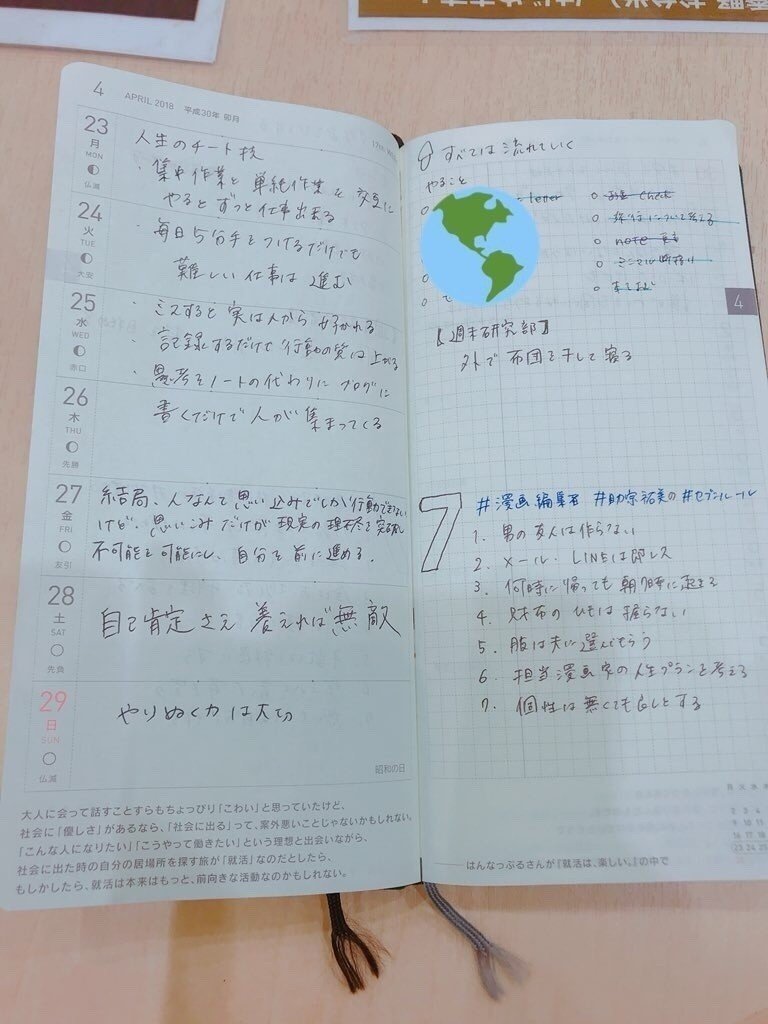 4 APRIL 2018 平成30年 卯月
17th
23 月 MON 仏滅
人生のチート技
・集中作業と単純作業を交互に
やるとずっと仕事出来る
24 火 TUE 大安
・毎日5分手をつけるだけでも
難しい仕事は進む
25 水 WED 赤口
・ミスすると実は人から好かれる
・記録するだけで行動の質は上がる
・思考をノートの代わりにブログに
26 木 THU 先勝
書くだけで人が集まってくる
27 金 FRI 友引
結局、人なんて思い込みでしか行動できない
けど、思いこみだけが現実の理不尽を突破し
不可能を可能にし、自分を前に進める。
28 土 SAT 先負
自己肯定さえ養えれば無敵
29 日 SUN 仏滅
やりぬく力は大切
昭和の日
大人に会って話すことすらもちょっぴり「こわい」と思っていたけど、
社会に「優しさ」があるなら、「社会に出る」って、案外悪いことじゃないかもしれない。
「こんな人になりたい」「こうやって働きたい」という理想と出会いながら、
社会に出た時の自分の居場所を探す旅が「就活」なのだとしたら、
もしかしたら、就活は本来はもっと、前向きな活動なのかもしれない。
すべては流れていく
やること
letter
check
旅行について考える
note
ミニマル断捨離
4
【週末研究部】
外で布団を干して寝る
7
#漫画編集者 #助宗佑美の#セブンルール
1. 男の友人は作らない
2. メール・LINEは即レス
3. 何時に帰っても朝7時に起きる
4. 財布のひもは握らない
5. 服は夫に選んでもらう
6. 担当漫画家の人生プランを考える
7. 個性は無くても良しとする
月 火 水 木
2 3 4
9 10 11
16 17 18
23 24 25
はんなっぷるさんが『就活は、楽しい。』の中で